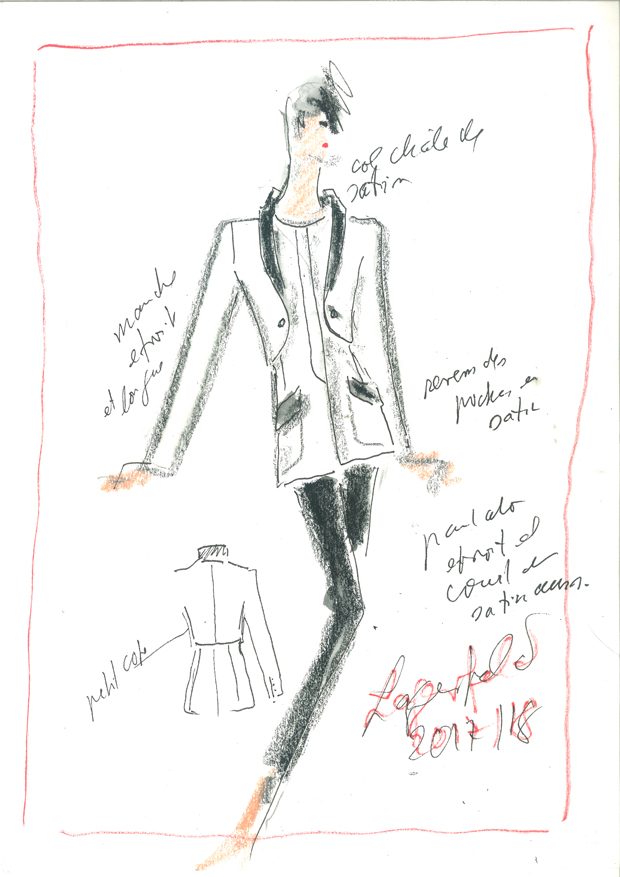 col châle de
satin
manche
etroit
et longue
revers des
poches en
satin
pantalo
etroit et
court
satin
petit
Lagerfeld
2017/18